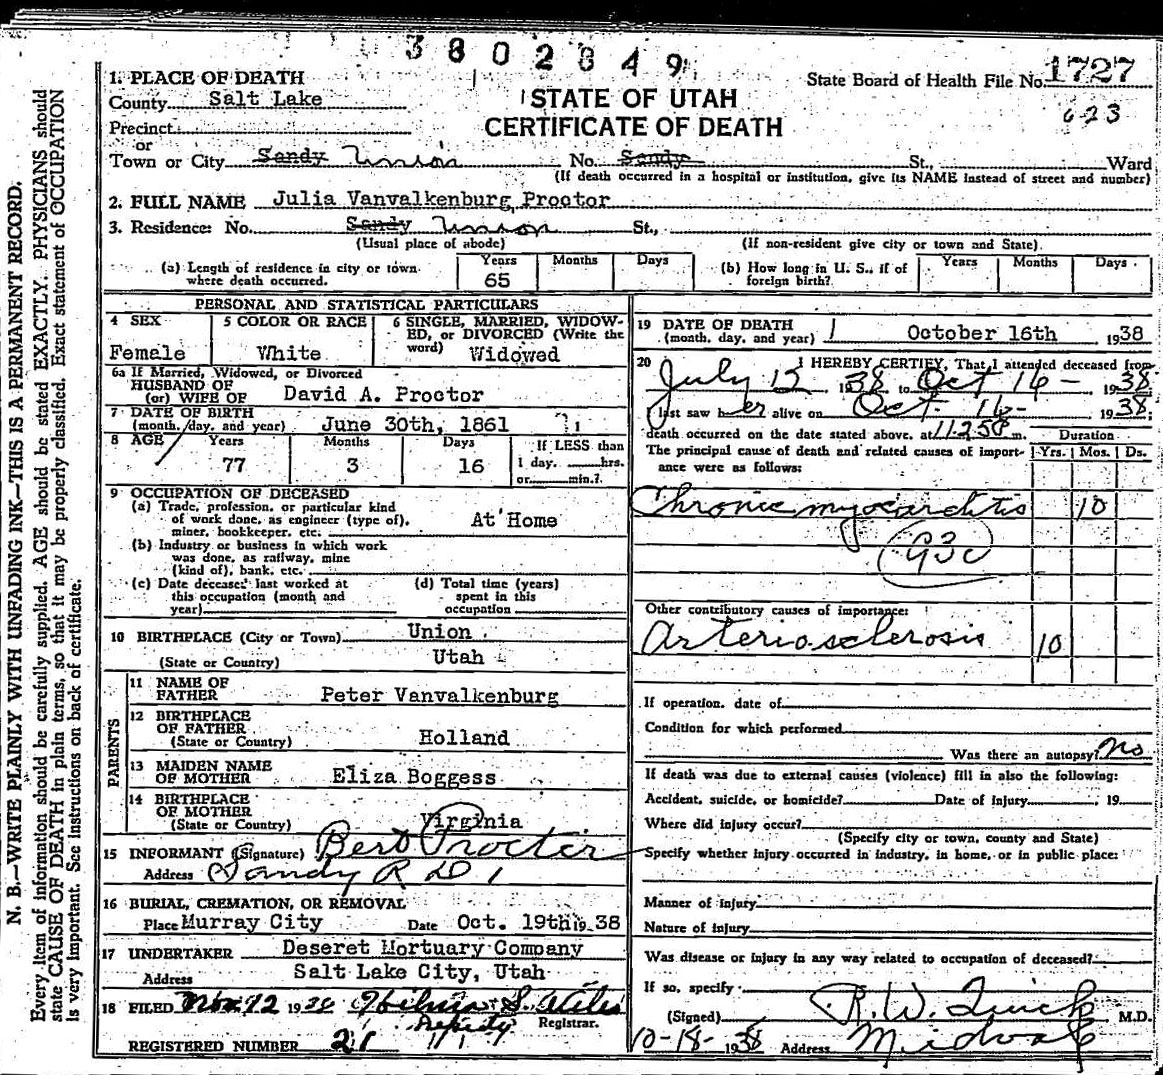 3802849
1. PLACE OF DEATH
State Board of Health File No. 1727
County Salt Lake
STATE OF UTAH
623
Precinct
CERTIFICATE OF DEATH
or
Town or City Sandy Union No. Sandy St., Ward
(If death occurred in a hospital or institution, give its NAME instead of street and number)
2. FULL NAME Julia Vanvalkenburg Proctor
3. Residence: No. Sandy Union St.,
(Usual place of abode) (If non-resident give city or town and State)
(a) Length of residence in city or town where death occurred. Years 65 Months Days
(b) How long in U. S., if of foreign birth? Years Months Days
PERSONAL AND STATISTICAL PARTICULARS
4 SEX Female
5 COLOR OR RACE White
6 SINGLE, MARRIED, WIDOWED, or DIVORCED (Write the word) Widowed
6a If Married, Widowed, or Divorced
HUSBAND OF
(or) WIFE OF David A. Proctor
7 DATE OF BIRTH
(month, day, and year) June 30th, 1861
8 AGE Years 77 Months 3 Days 16
If LESS than
1 day, hrs.
or min.?
9 OCCUPATION OF DECEASED
(a) Trade, profession, or particular kind
of work done, as engineer (type of),
miner, bookkeeper, etc. At Home
(b) Industry or business in which work
was done, as railway, mine
(kind of), bank, etc.
(c) Date deceased last worked at
this occupation (month and
year)
(d) Total time (years)
spent in this
occupation
10 BIRTHPLACE (City or Town) Union
(State or Country) Utah
PARENTS
11 NAME OF
FATHER Peter Vanvalkenburg
12 BIRTHPLACE
OF FATHER
(State or Country) Holland
13 MAIDEN NAME
OF MOTHER Eliza Boggess
14 BIRTHPLACE
OF MOTHER
(State or Country) Virginia
15 INFORMANT (Signature) Bert Procter
Address Sandy R D 1
16 BURIAL, CREMATION, OR REMOVAL
Place Murray City Date Oct. 19th 19 38
17 UNDERTAKER Deseret Mortuary Company
Address Salt Lake City, Utah
18 FILED Nov 12 19
Deputy Registrar.
REGISTERED NUMBER 21
19 DATE OF DEATH
(month, day, and year) October 16th 1938
20 I HEREBY CERTIFY, That I attended deceased from
July 12 1938 to Oct 16 - 1938
I last saw her alive on Oct. 16 - 1938;
death occurred on the date stated above, at 11:25P m.
The principal cause of death and related causes of importance were as follows:
Duration
Yrs. Mos. Ds.
Chronic myocarditis 10
93c
Other contributory causes of importance:
Arteriosclerosis 10
If operation, date of
Condition for which performed
Was there an autopsy? No
If death was due to external causes (violence) fill in also the following:
Accident, suicide, or homicide? Date of Injury 19
Where did injury occur?
(Specify city or town, county and State)
Specify whether injury occurred in industry, in home, or in public place:
Manner of injury
Nature of injury
Was disease or injury in any way related to occupation of deceased?
If so, specify
(Signed) R. W. Quick M.D.
10-18-1938 Address Midvale
N. B.—WRITE PLAINLY WITH UNFADING INK—THIS IS A PERMANENT RECORD.
Every item of information should be carefully supplied. AGE should be stated EXACTLY. PHYSICIANS should
state CAUSE OF DEATH in plain terms, so that it may be properly classified. Exact statement of OCCUPATION
is very important. See instructions on back of certificate.